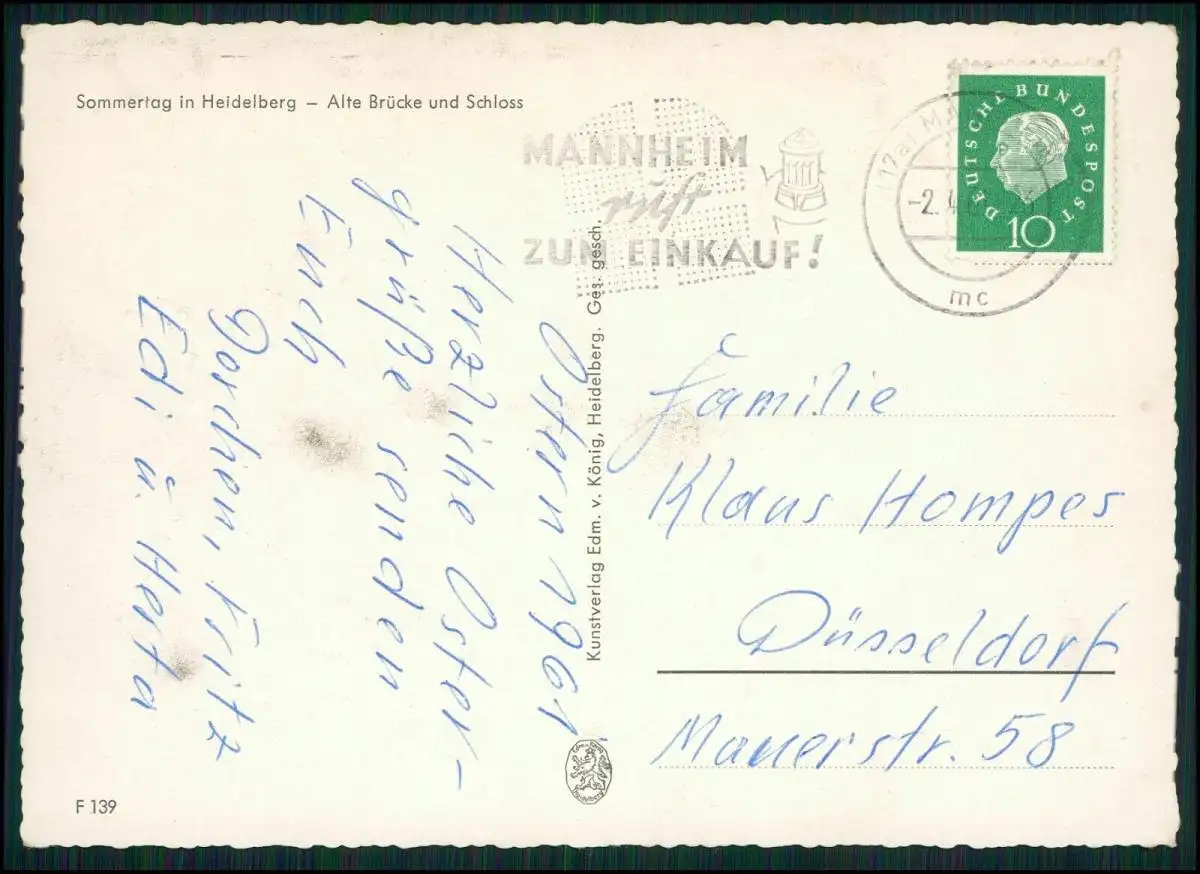 Sommertag in Heidelberg – Alte Brücke und Schloss
MANNHEIM
ruft
ZUM EINKAUF!
(17a) M
-2.4
mc
DEUTSCHE BUNDESPOST
10
Ostern 1961
Herzliche Oster-
grüße senden
Euch
Dorchen, Fritz
Edi ü. Herta
Kunstverlag Edm. v. König, Heidelberg. Ges. gesch.
Familie
Klaus Hompes
Düsseldorf
Mauerstr. 58
Heidelberg
F 139